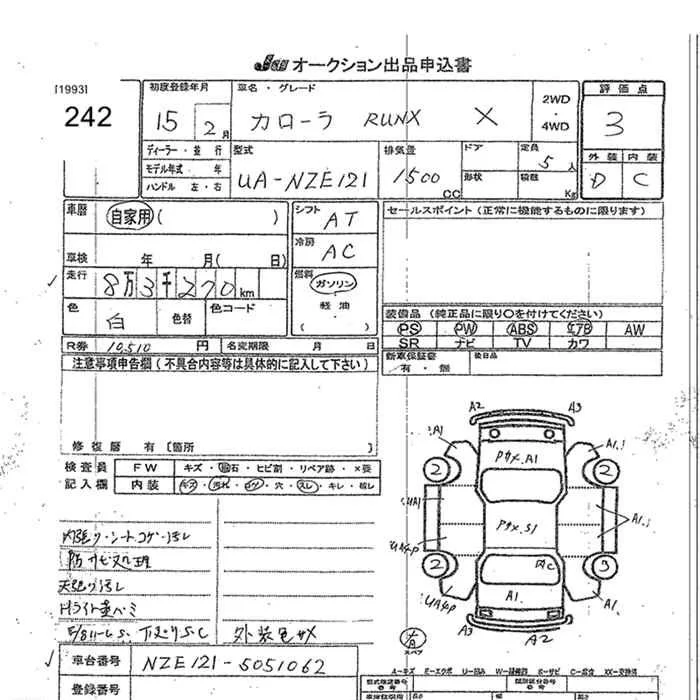 JAA オークション出品申込書
[1993]
242
初度登録年月
15 2月
車名・グレード
カローラ RUNX X
2WD
・
4WD
評価点
3
外装 内装
D C
ディーラー・並行
モデル年式 年
ハンドル 左・右
型式
UA-NZE121
排気量
1500 CC
ドア
形状
定員
5人
積数
Kg
車歴
自家用 ( )
車検 年 月( 日)
走行
8万3千270 km
色
白
色替
色コード
シフト
AT
冷房
AC
燃料
ガソリン
軽油
( )
セールスポイント (正常に機能するものに限ります)
装備品 (純正品に限り○を付けてください)
PS PW ABS エアB AW
SR ナビ TV カワ
新車保証書
有・無
後日品
R券 10,510 円 名変期限 月 日
注意事項申告欄 (不具合内容等は具体的に記入して下さい)
修復歴 有 [箇所 ]
検査員
記入欄
FW キズ・飛石・ヒビ割・リペア跡・×要
内装 キズ・汚れ・コゲ・穴・スレ・キレ・破レ
内張り・シートコゲ・汚レ
防サビ処理
天張り汚レ
外装色サメ
A2 A3
A1 Pサメ.A1 A1
2 2
UA1 Pサメ.S1 A1
UA4P
2 3
UA4P A1. A1.
A3 A2
スペア
車台番号 NZE121-5051062
登録番号
A=キズ E=エクボ U=凹み W=修復跡 S=サビ C=腐食 XX=交換済
型式指定番号
類別区分番号